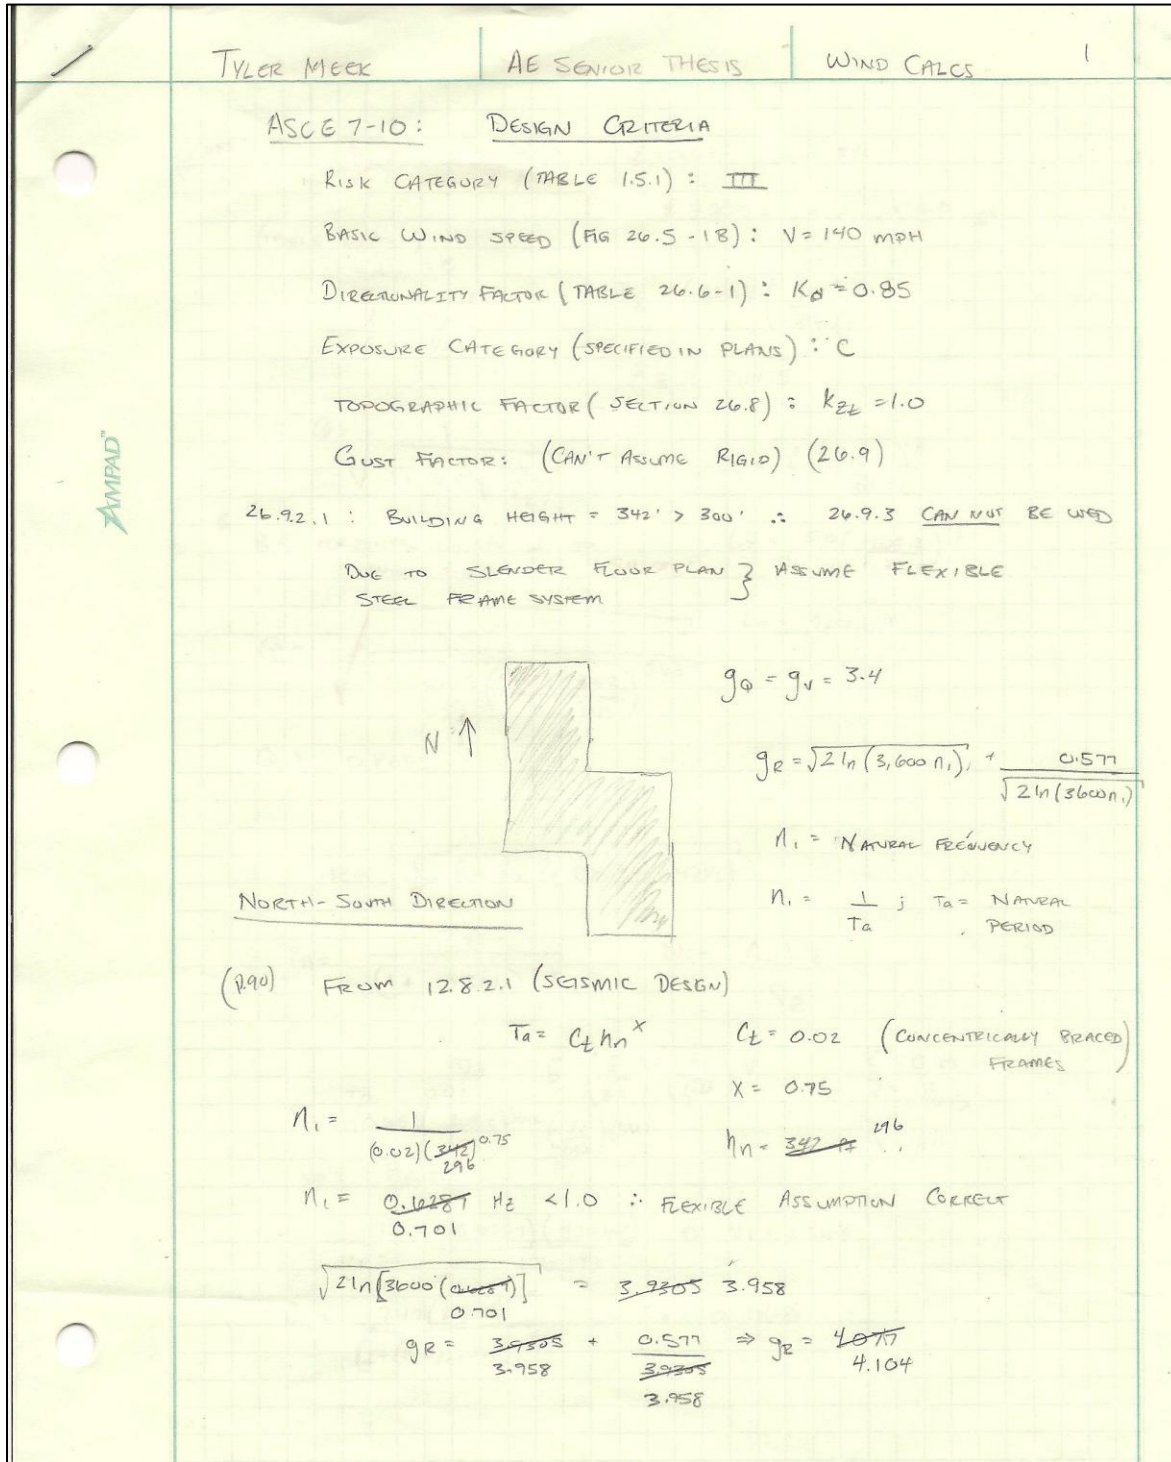 TYLER MEEK AE SENIOR THESIS WIND CALCS 1
ASCE 7-10: DESIGN CRITERIA
RISK CATEGORY (TABLE 1.5.1) : III
BASIC WIND SPEED (FIG 26.5-1B) : V = 140 MPH
DIRECTIONALITY FACTOR (TABLE 26.6-1) : Kd = 0.85
EXPOSURE CATEGORY (SPECIFIED IN PLANS) : C
TOPOGRAPHIC FACTOR (SECTION 26.8) : Kzt = 1.0
GUST FACTOR: (CAN'T ASSUME RIGID) (26.9)
AMPAD™
26.9.2.1 : BUILDING HEIGHT = 342' > 300' ∴ 26.9.3 CAN NOT BE USED
DUE TO SLENDER FLOOR PLAN } ASSUME FLEXIBLE
STEEL FRAME SYSTEM
gQ = gv = 3.4
N ↑
gR = √2 ln (3,600 n1) + 0.577 / √2 ln (3600 n1)
n1 = NATURAL FREQUENCY
NORTH-SOUTH DIRECTION
n1 = 1 / Ta ; Ta = NATURAL
PERIOD
(P.90) FROM 12.8.2.1 (SEISMIC DESIGN)
Ta = Ct hn^x Ct = 0.02 (CONCENTRICALLY BRACED
FRAMES)
x = 0.75
n1 = 1 / (0.02)(342)^0.75
296
hn = 342 ft 296
n1 = 0.6287 Hz < 1.0 ∴ FLEXIBLE ASSUMPTION CORRECT
0.701
√2 ln [3600 (0.6287)] = 3.9305 3.958
0.701
gR = 3.9305 + 0.577 / 3.9305 ⇒ gR = 4.077
3.958 3.958 4.104